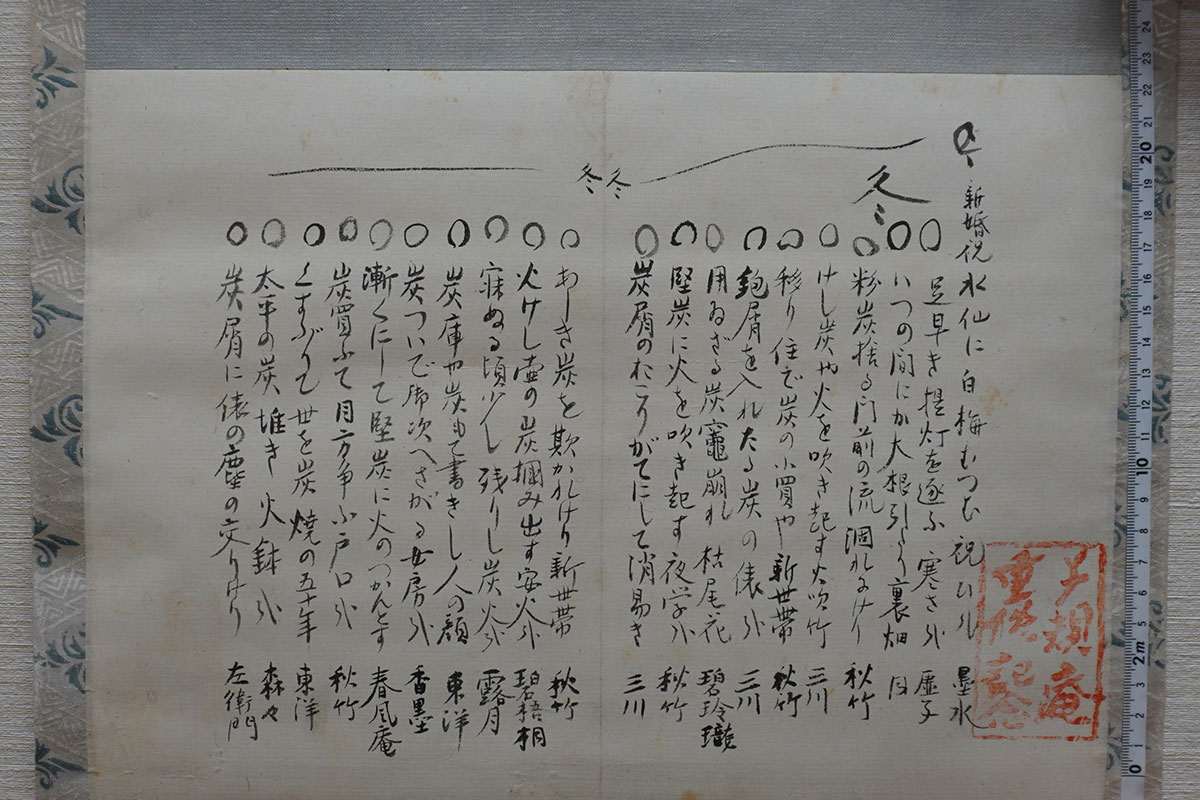 冬
新婚祝 水仙に白梅むつむ祝ひ哉 墨水
冬
足早き提灯を逐ふ寒さ哉 虚子
いつの間にか大根引たり裏畑 同
粉炭捨る門前の流涸れにけり 秋竹
けし炭や火を吹き起す火吹竹 三川
移り住で炭の小買や新世帯 秋竹
鉋屑を入れたる炭の俵哉 三川
用ゐざる炭竈崩れ枯尾花 碧玲瓏
堅炭に火を吹き起す夜学哉 秋竹
炭屑のおこりがてにして消易き 三川
冬
冬
あしき炭を欺かれけり新世帯 秋竹
火けし壷の炭掴み出す安火哉 碧梧桐
寐ぬる頃少し残りし炭火哉 露月
炭庫や炭もて書きし人の顔 東洋
炭ついで御次へさがる女房哉 香墨
漸くにして堅炭に火のつかんとす 春風庵
炭買ふて目方争ふ戸口哉 秋竹
くすぶりて世を炭焼の五十年 東洋
太平の炭堆き火鉢哉 森々
炭屑に俵の塵の交りけり 左衛門
子規庵